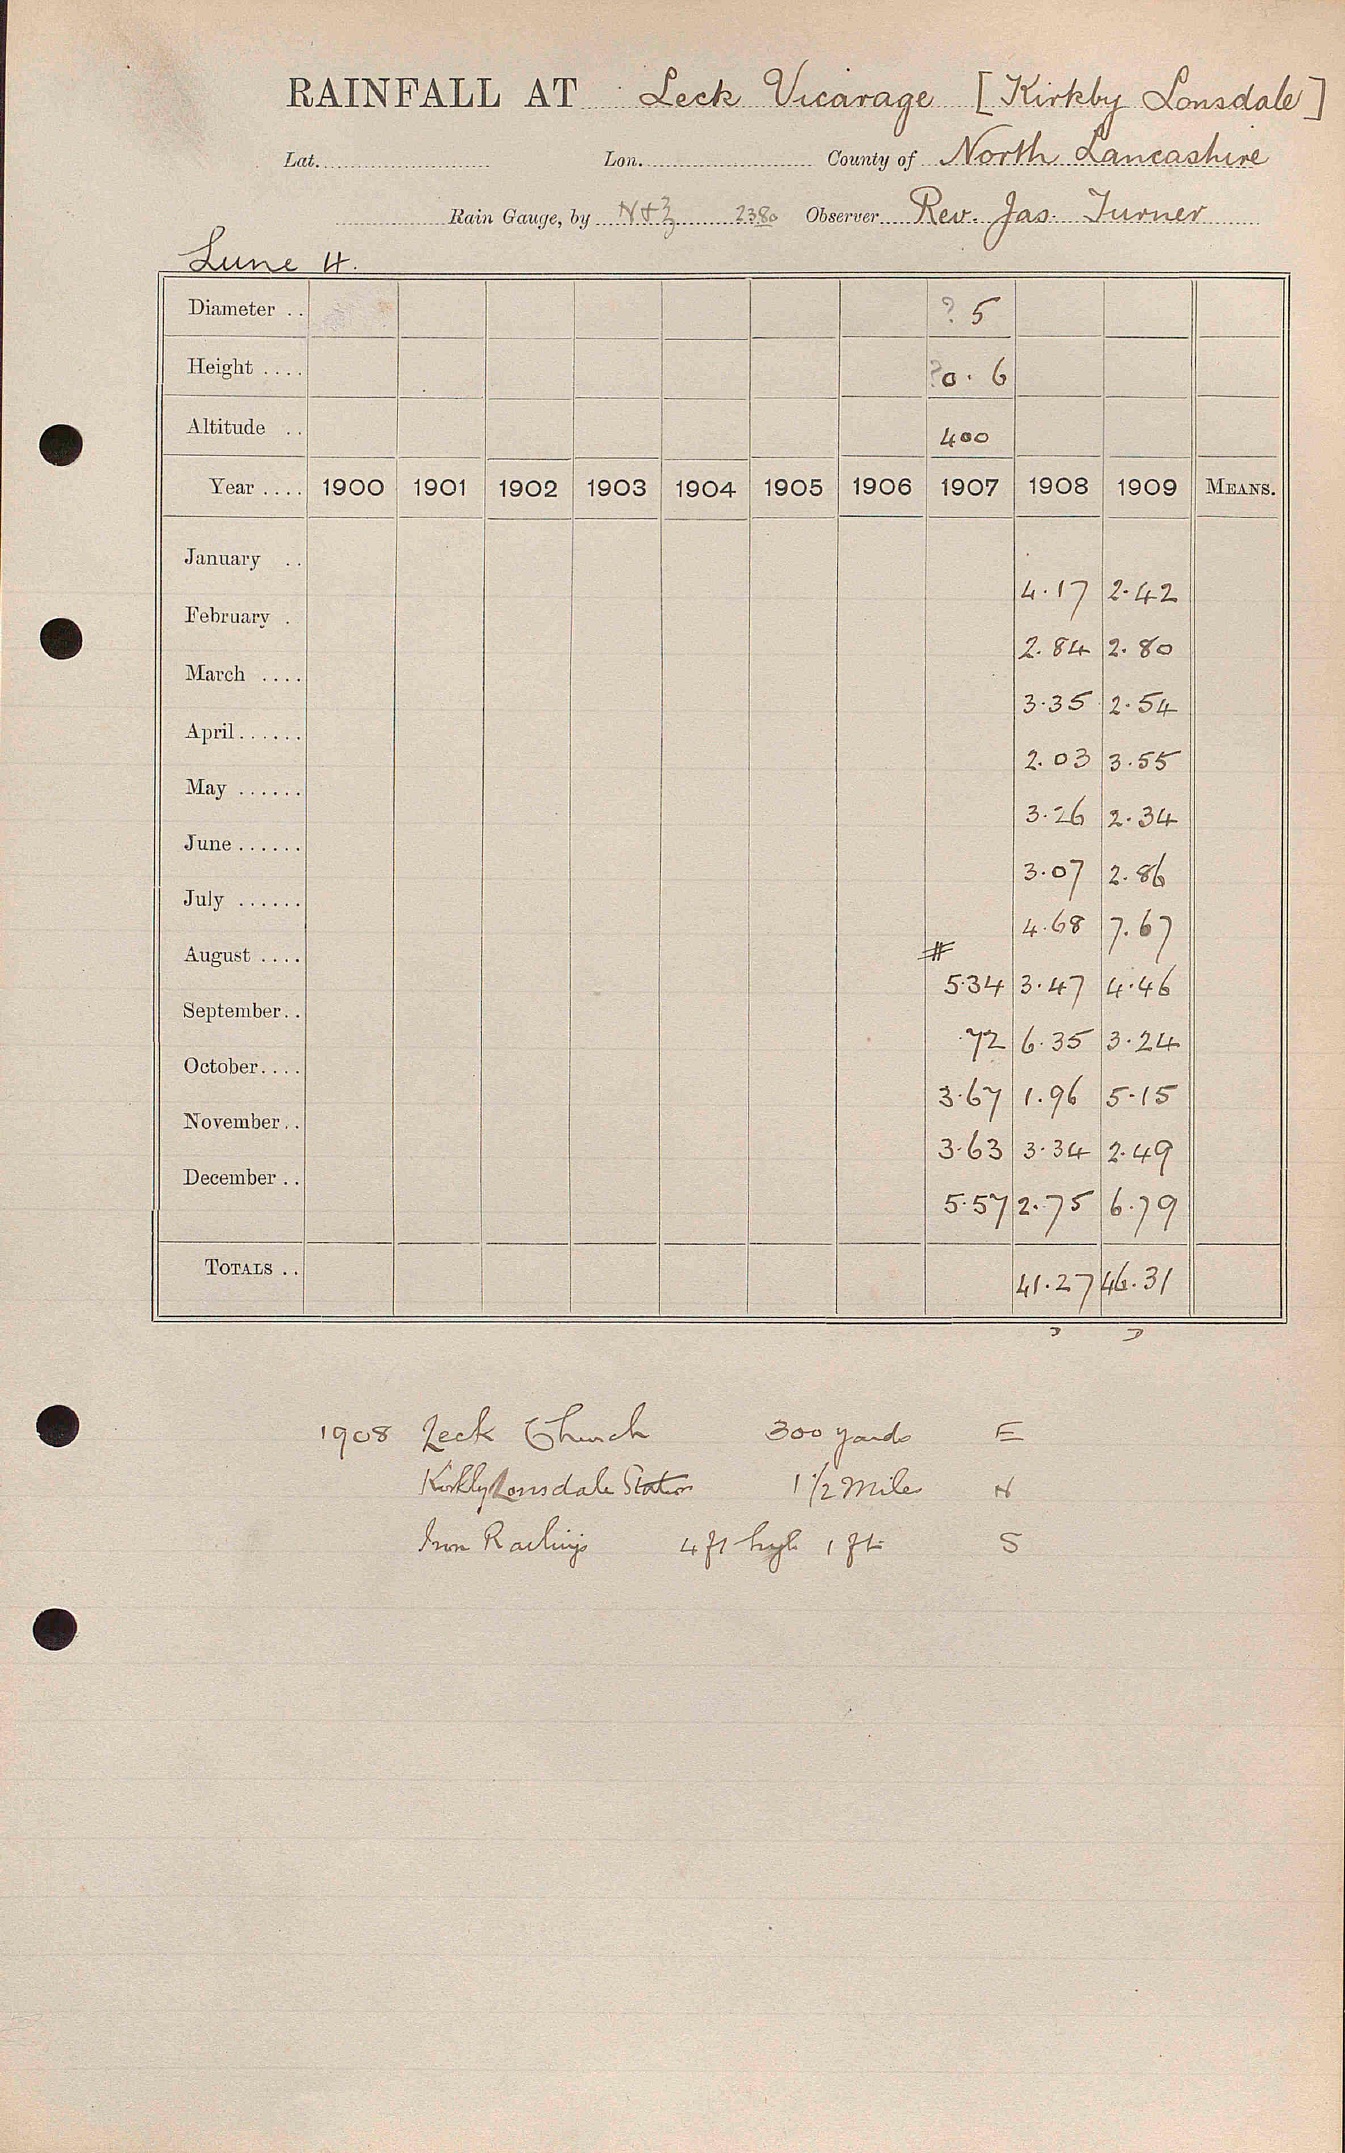 RAINFALL AT Leck Vicarage [Kirkby Lonsdale]
Lat. Lon. County of North Lancashire
Rain Gauge, by N & Z 2380 Observer Rev. Jas. Turner
Lune 4.
Diameter .. ? 5
Height .... ? 0.6
Altitude .. 400
Year .... 1900 1901 1902 1903 1904 1905 1906 1907 1908 1909 MEANS.
January .. 4.17 2.42
February . 2.84 2.80
March .... 3.35 2.54
April ...... 2.03 3.55
May ...... 3.26 2.34
June ...... 3.07 2.86
July ...... 4.68 7.67
#
August .... 5.34 3.47 4.46
September.. .72 6.35 3.24
October.... 3.67 1.96 5.15
November.. 3.63 3.34 2.49
December .. 5.57 2.75 6.79
TOTALS .. 41.27 46.31
1908 Leck Church 300 yards E
Kirkby Lonsdale Station 1 1/2 Miles N
Iron Railings 4 ft high 1 ft S